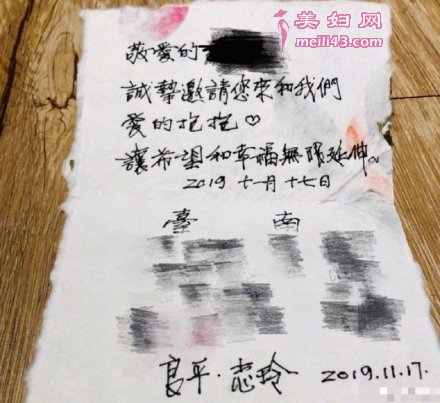 美妇网
meili43.com
敬愛的
誠摯邀請您來和我們
愛的抱抱♡
讓希望和幸福無限延伸~
2019 十一月 十七日
臺 南
良平·志玲 2019.11.17.